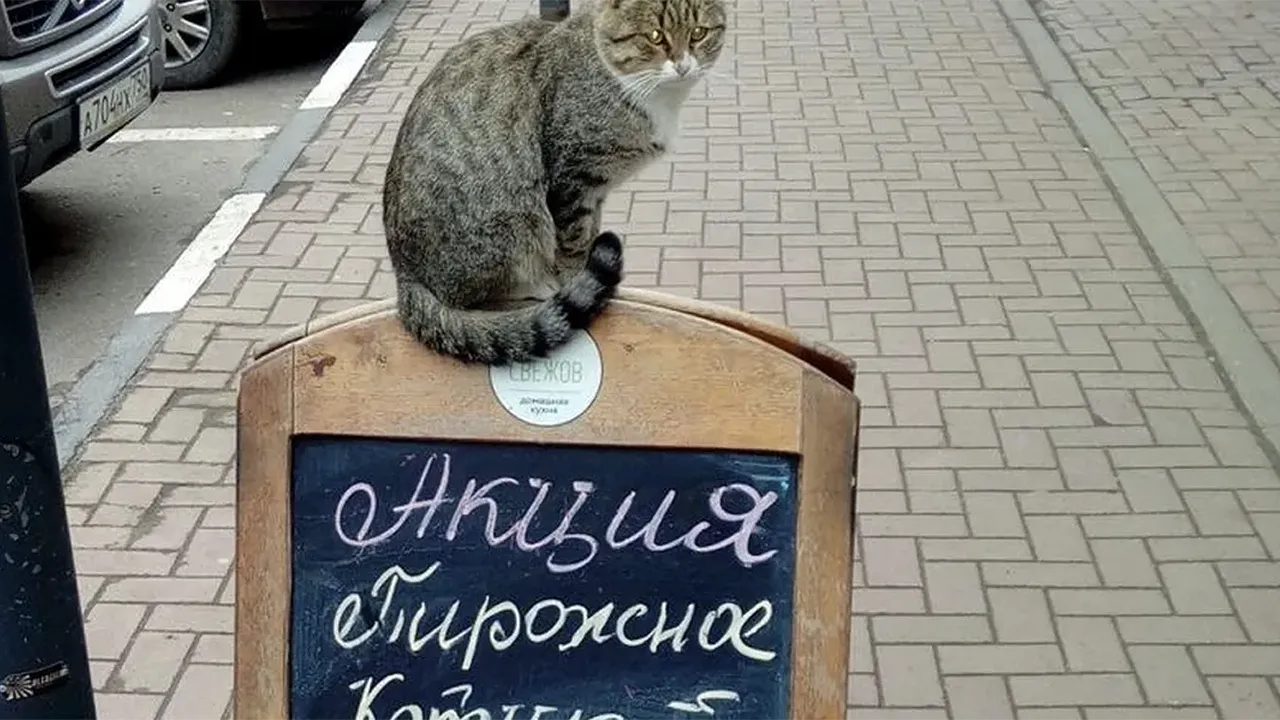 А704НХ750
СВЕЖОВ
домашняя
кухня
Акция
Пирожное